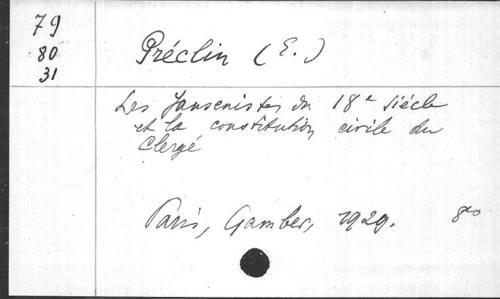 79
80
31
Préclin (E.)
Les Jansenistes du 18e siècle
et la constitution civile du
Clergé
Paris, Gamber, 1929. 8o